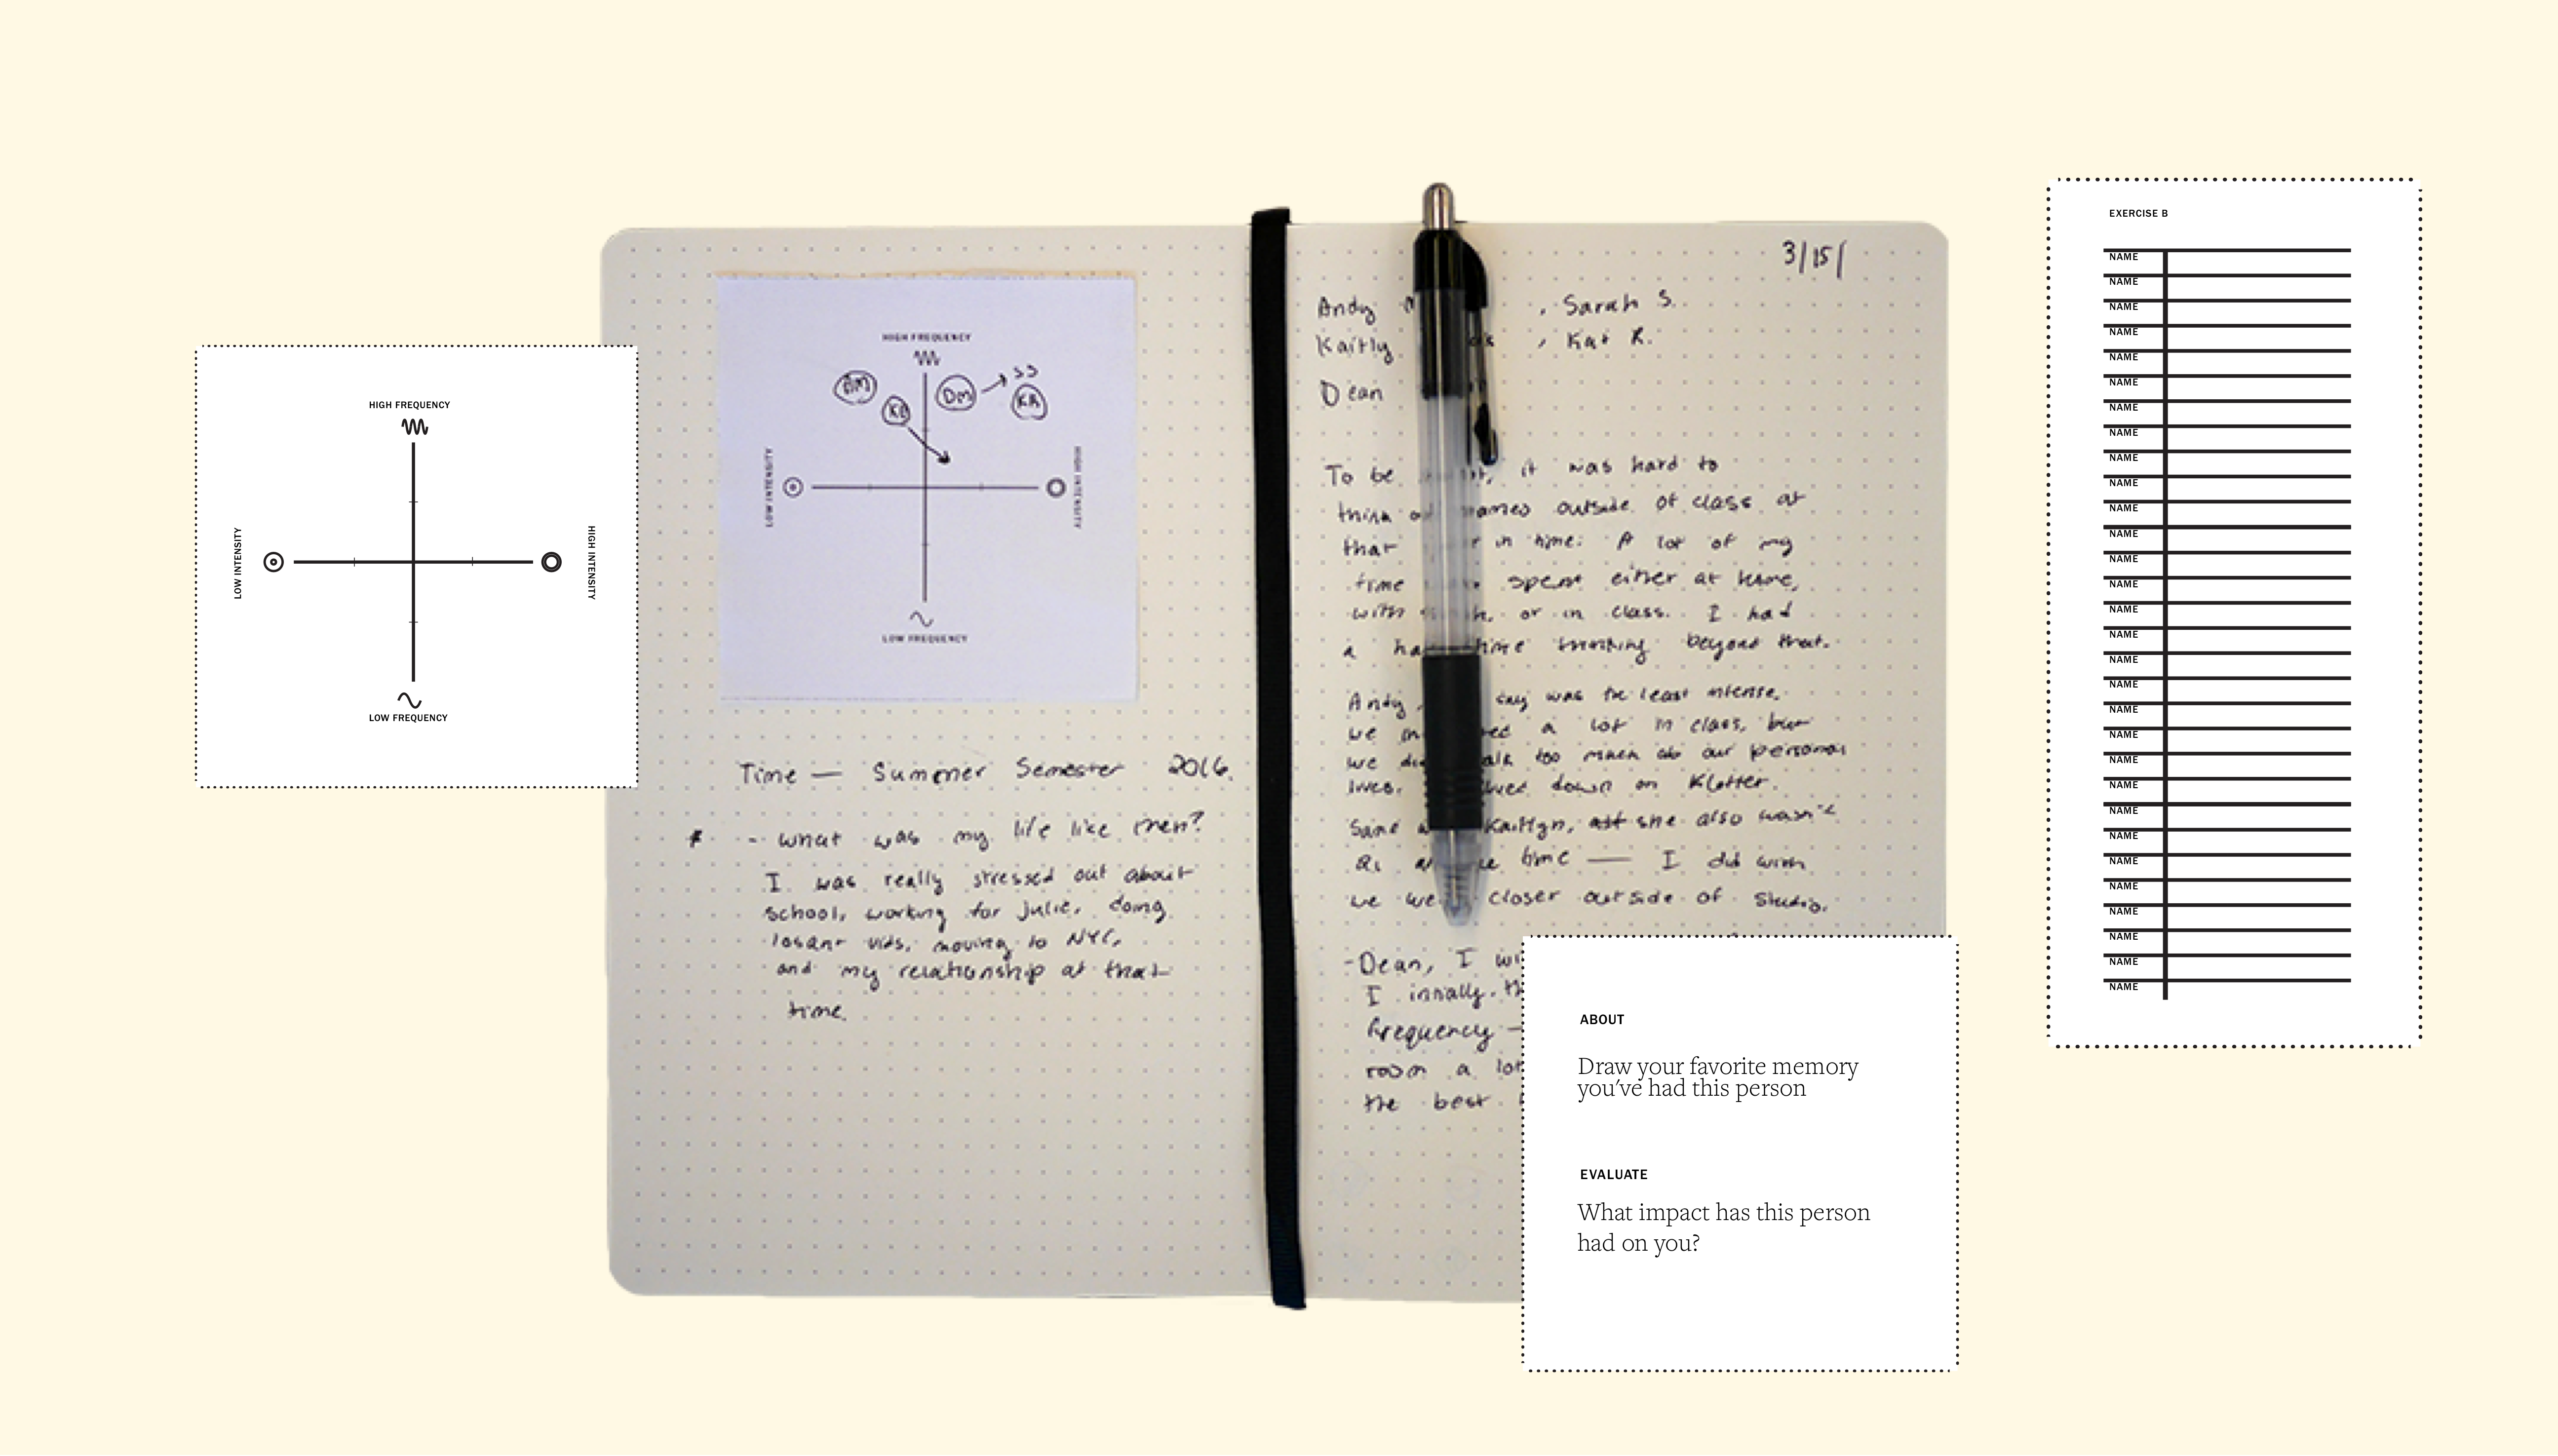 HIGH FREQUENCY
LOW INTENSITY
HIGH INTENSITY
LOW FREQUENCY
HIGH FREQUENCY
AM
KB
DM
SS
KR
LOW INTENSITY
HIGH INTENSITY
LOW FREQUENCY
Time — Summer Semester 2016.
- what was my life like then?
I was really stressed out about
school, working for julie, doing
losant vids, moving to NYC,
and my relationship at that
time.
3/15/
Andy , Sarah S.
Kaitly , Kat R.
Dean
To be it was hard to
think names outside of class at
that in time. A lot of my
time spent either at home,
with or in class. I had
a time thinking beyond that.
Andy, say was the least intense.
we a lot in class, but
we too much our personal
lives. down on Klotter.
Same Kaitlyn, she also wasn't
as time — I did wish
we we closer outside of studio.
- Dean, I wi
I
frequency -
room a lot
the best
ABOUT
Draw your favorite memory
you've had this person
EVALUATE
What impact has this person
had on you?
EXERCISE B
NAME
NAME
NAME
NAME
NAME
NAME
NAME
NAME
NAME
NAME
NAME
NAME
NAME
NAME
NAME
NAME
NAME
NAME
NAME
NAME
NAME
NAME
NAME
NAME
NAME
NAME
NAME
NAME
NAME
NAME